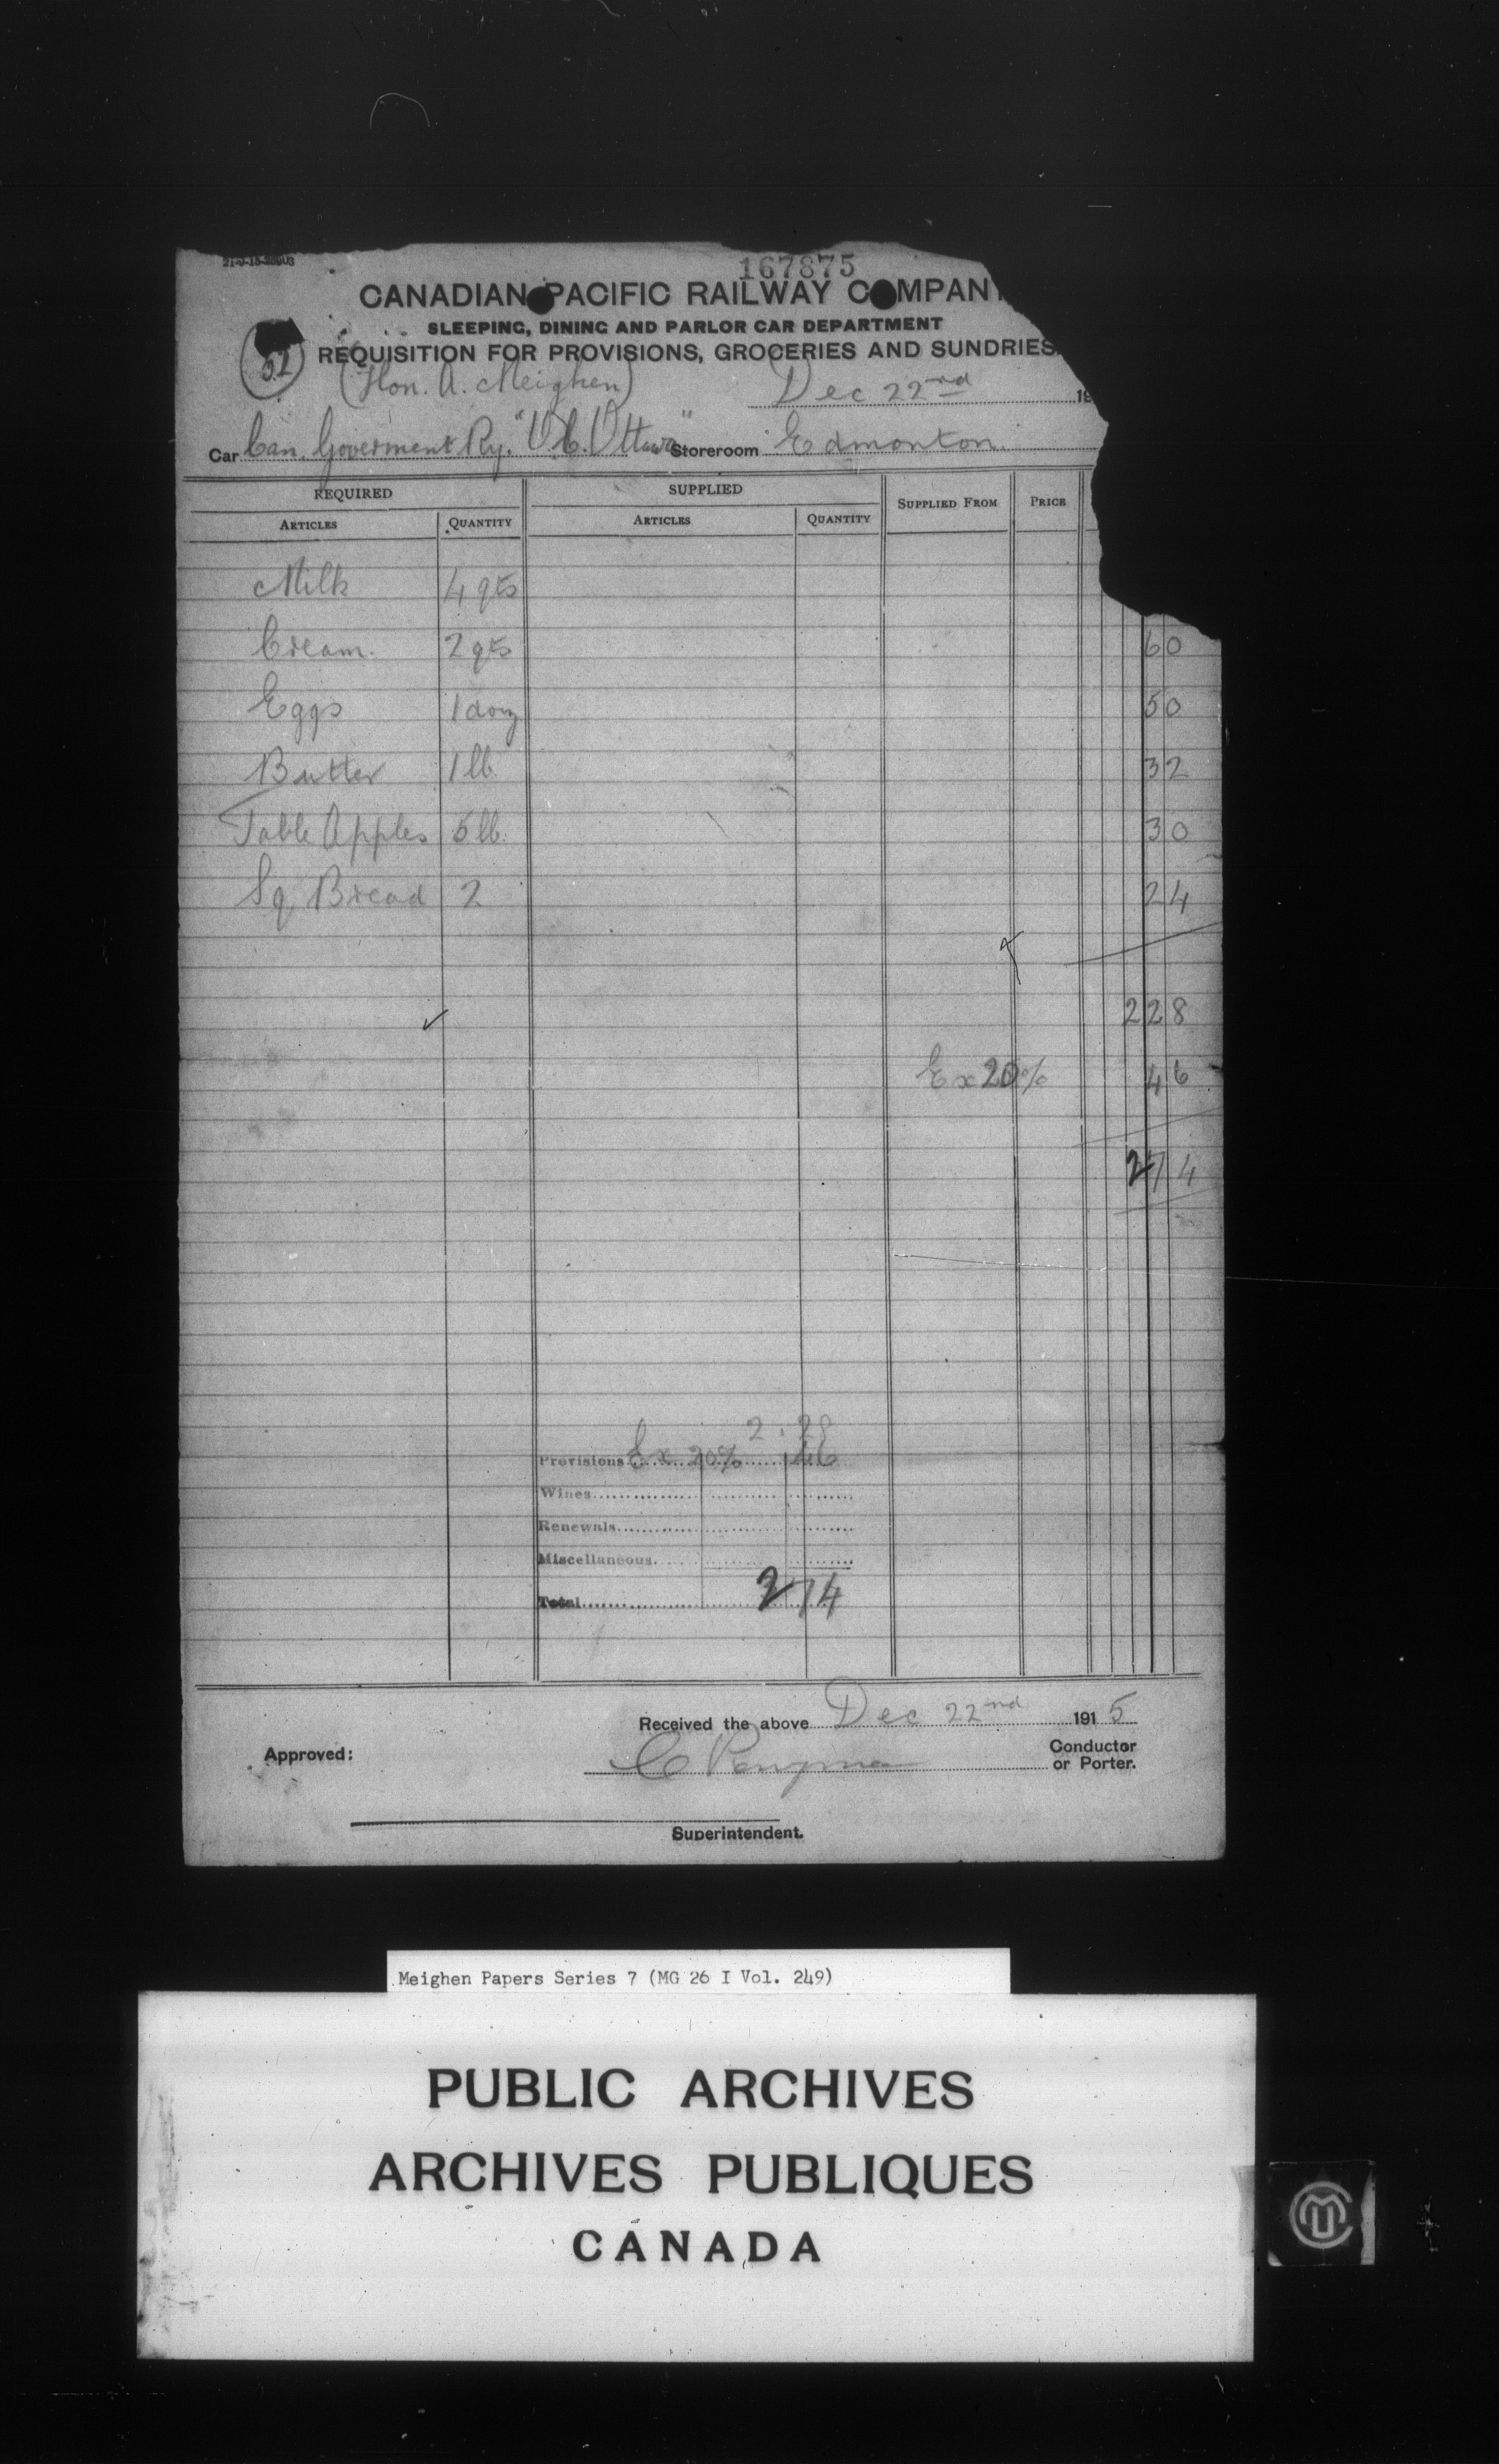 167875
CANADIAN PACIFIC RAILWAY COMPANY
SLEEPING, DINING AND PARLOR CAR DEPARTMENT
52 REQUISITION FOR PROVISIONS, GROCERIES AND SUNDRIES
(Hon. A. Meighen) Dec 22nd 19
Car Can. Goverment Ry. Ottawa" Storeroom Edmonton.
REQUIRED SUPPLIED SUPPLIED FROM PRICE
ARTICLES QUANTITY ARTICLES QUANTITY
Milk 4 qts
Cream. 2 qts 60
Eggs 1 doz 50
Butter 1 lb. 32
Table Apples 5 lb. 30
Sq. Bread 2 24
2 28
Ex 20% 46
2 74
2. 28
Provisions Ex. 20% 46
Wines
Renewals
Miscellaneous
Total 2 74
Received the above Dec 22nd 1915
Approved: C Conductor
or Porter.
Superintendent.
Meighen Papers Series 7 (MG 26 I Vol. 249)
PUBLIC ARCHIVES
ARCHIVES PUBLIQUES
CANADA